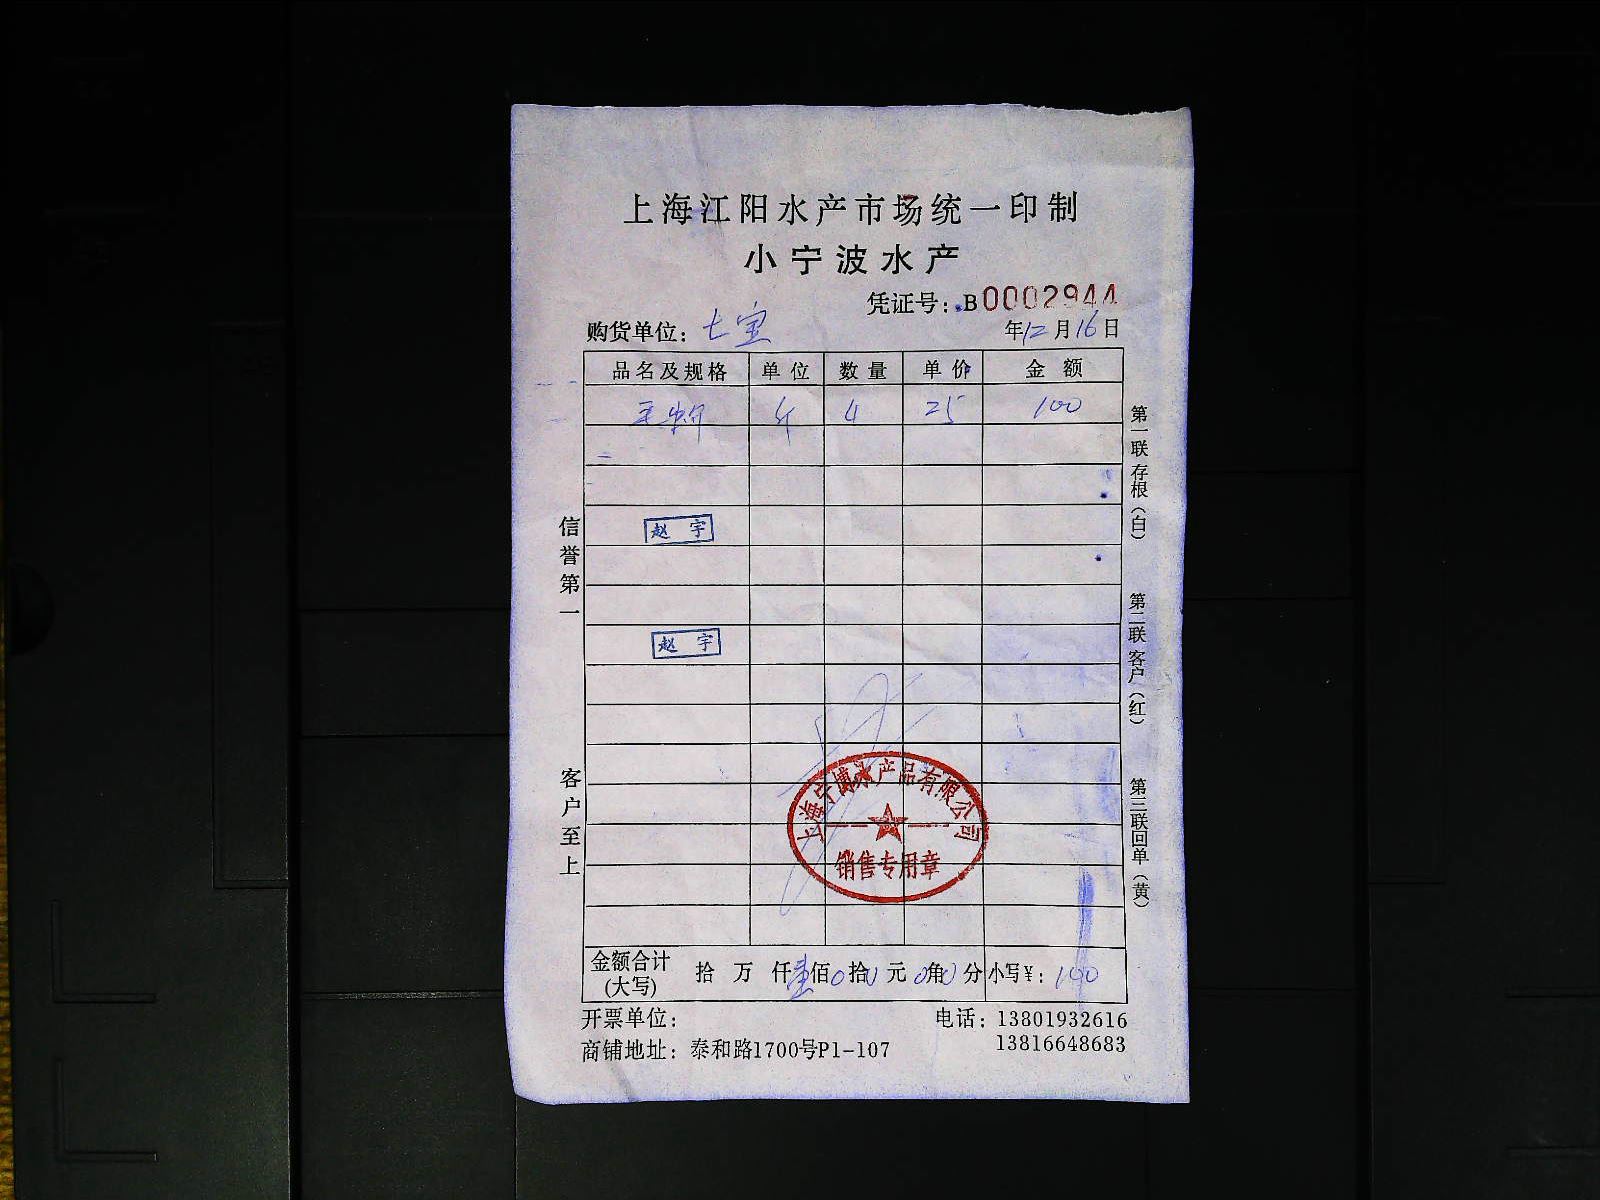 上海江阳水产市场统一印制
小宁波水产
凭证号：B0002944
购货单位：七宝 年12月16日
品名及规格 单位 数量 单价 金额
斤 4 25 100
赵宇
赵宇
信誉第一
客户至上
第一联 存根（白）
第二联 客户（红）
第三联 回单（黄）
上海宁博水产品有限公司
销售专用章
金额合计(大写) 拾 万 仟壹佰0拾0元0角0分 小写¥：100
开票单位： 电话：13801932616
商铺地址：泰和路1700号P1-107 13816648683